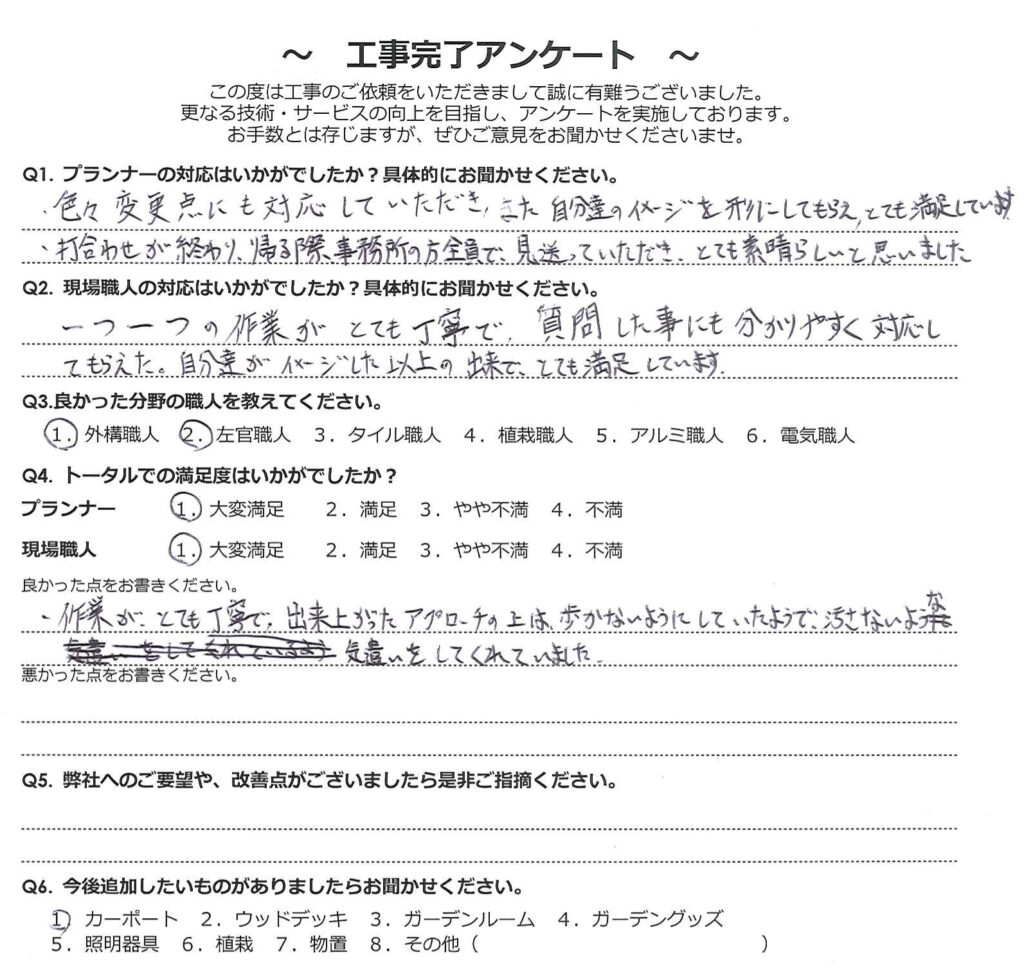 ～ 工事完了アンケート ～
この度は工事のご依頼をいただきまして誠に有難うございました。
更なる技術・サービスの向上を目指し、アンケートを実施しております。
お手数とは存じますが、ぜひご意見をお聞かせくださいませ。
Q1. プランナーの対応はいかがでしたか？具体的にお聞かせください。
・色々変更点にも対応していただき、また自分達のイメージを形にしてもらえ、とても満足しています
・打合わせが終わり、帰る際、事務所の方全員で、見送っていただき、とても素晴らしいと思いました
Q2. 現場職人の対応はいかがでしたか？具体的にお聞かせください。
一つ一つの作業がとても丁寧で、質問した事にも分かりやすく対応し
てもらえた。自分達がイメージした以上の出来で、とても満足しています.
Q3.良かった分野の職人を教えてください。
1. 外構職人 2. 左官職人 3. タイル職人 4. 植栽職人 5. アルミ職人 6. 電気職人
Q4. トータルでの満足度はいかがでしたか？
プランナー 1. 大変満足 2. 満足 3. やや不満 4. 不満
現場職人 1. 大変満足 2. 満足 3. やや不満 4. 不満
良かった点をお書きください。
・作業が、とても丁寧で、出来上がったアプローチの上は、歩かないようにしていたようで、汚さないような
気遣いをしてくれていました.
悪かった点をお書きください。
Q5. 弊社へのご要望や、改善点がございましたら是非ご指摘ください。
Q6. 今後追加したいものがありましたらお聞かせください。
1. カーポート 2. ウッドデッキ 3. ガーデンルーム 4. ガーデングッズ
5. 照明器具 6. 植栽 7. 物置 8. その他（ ）